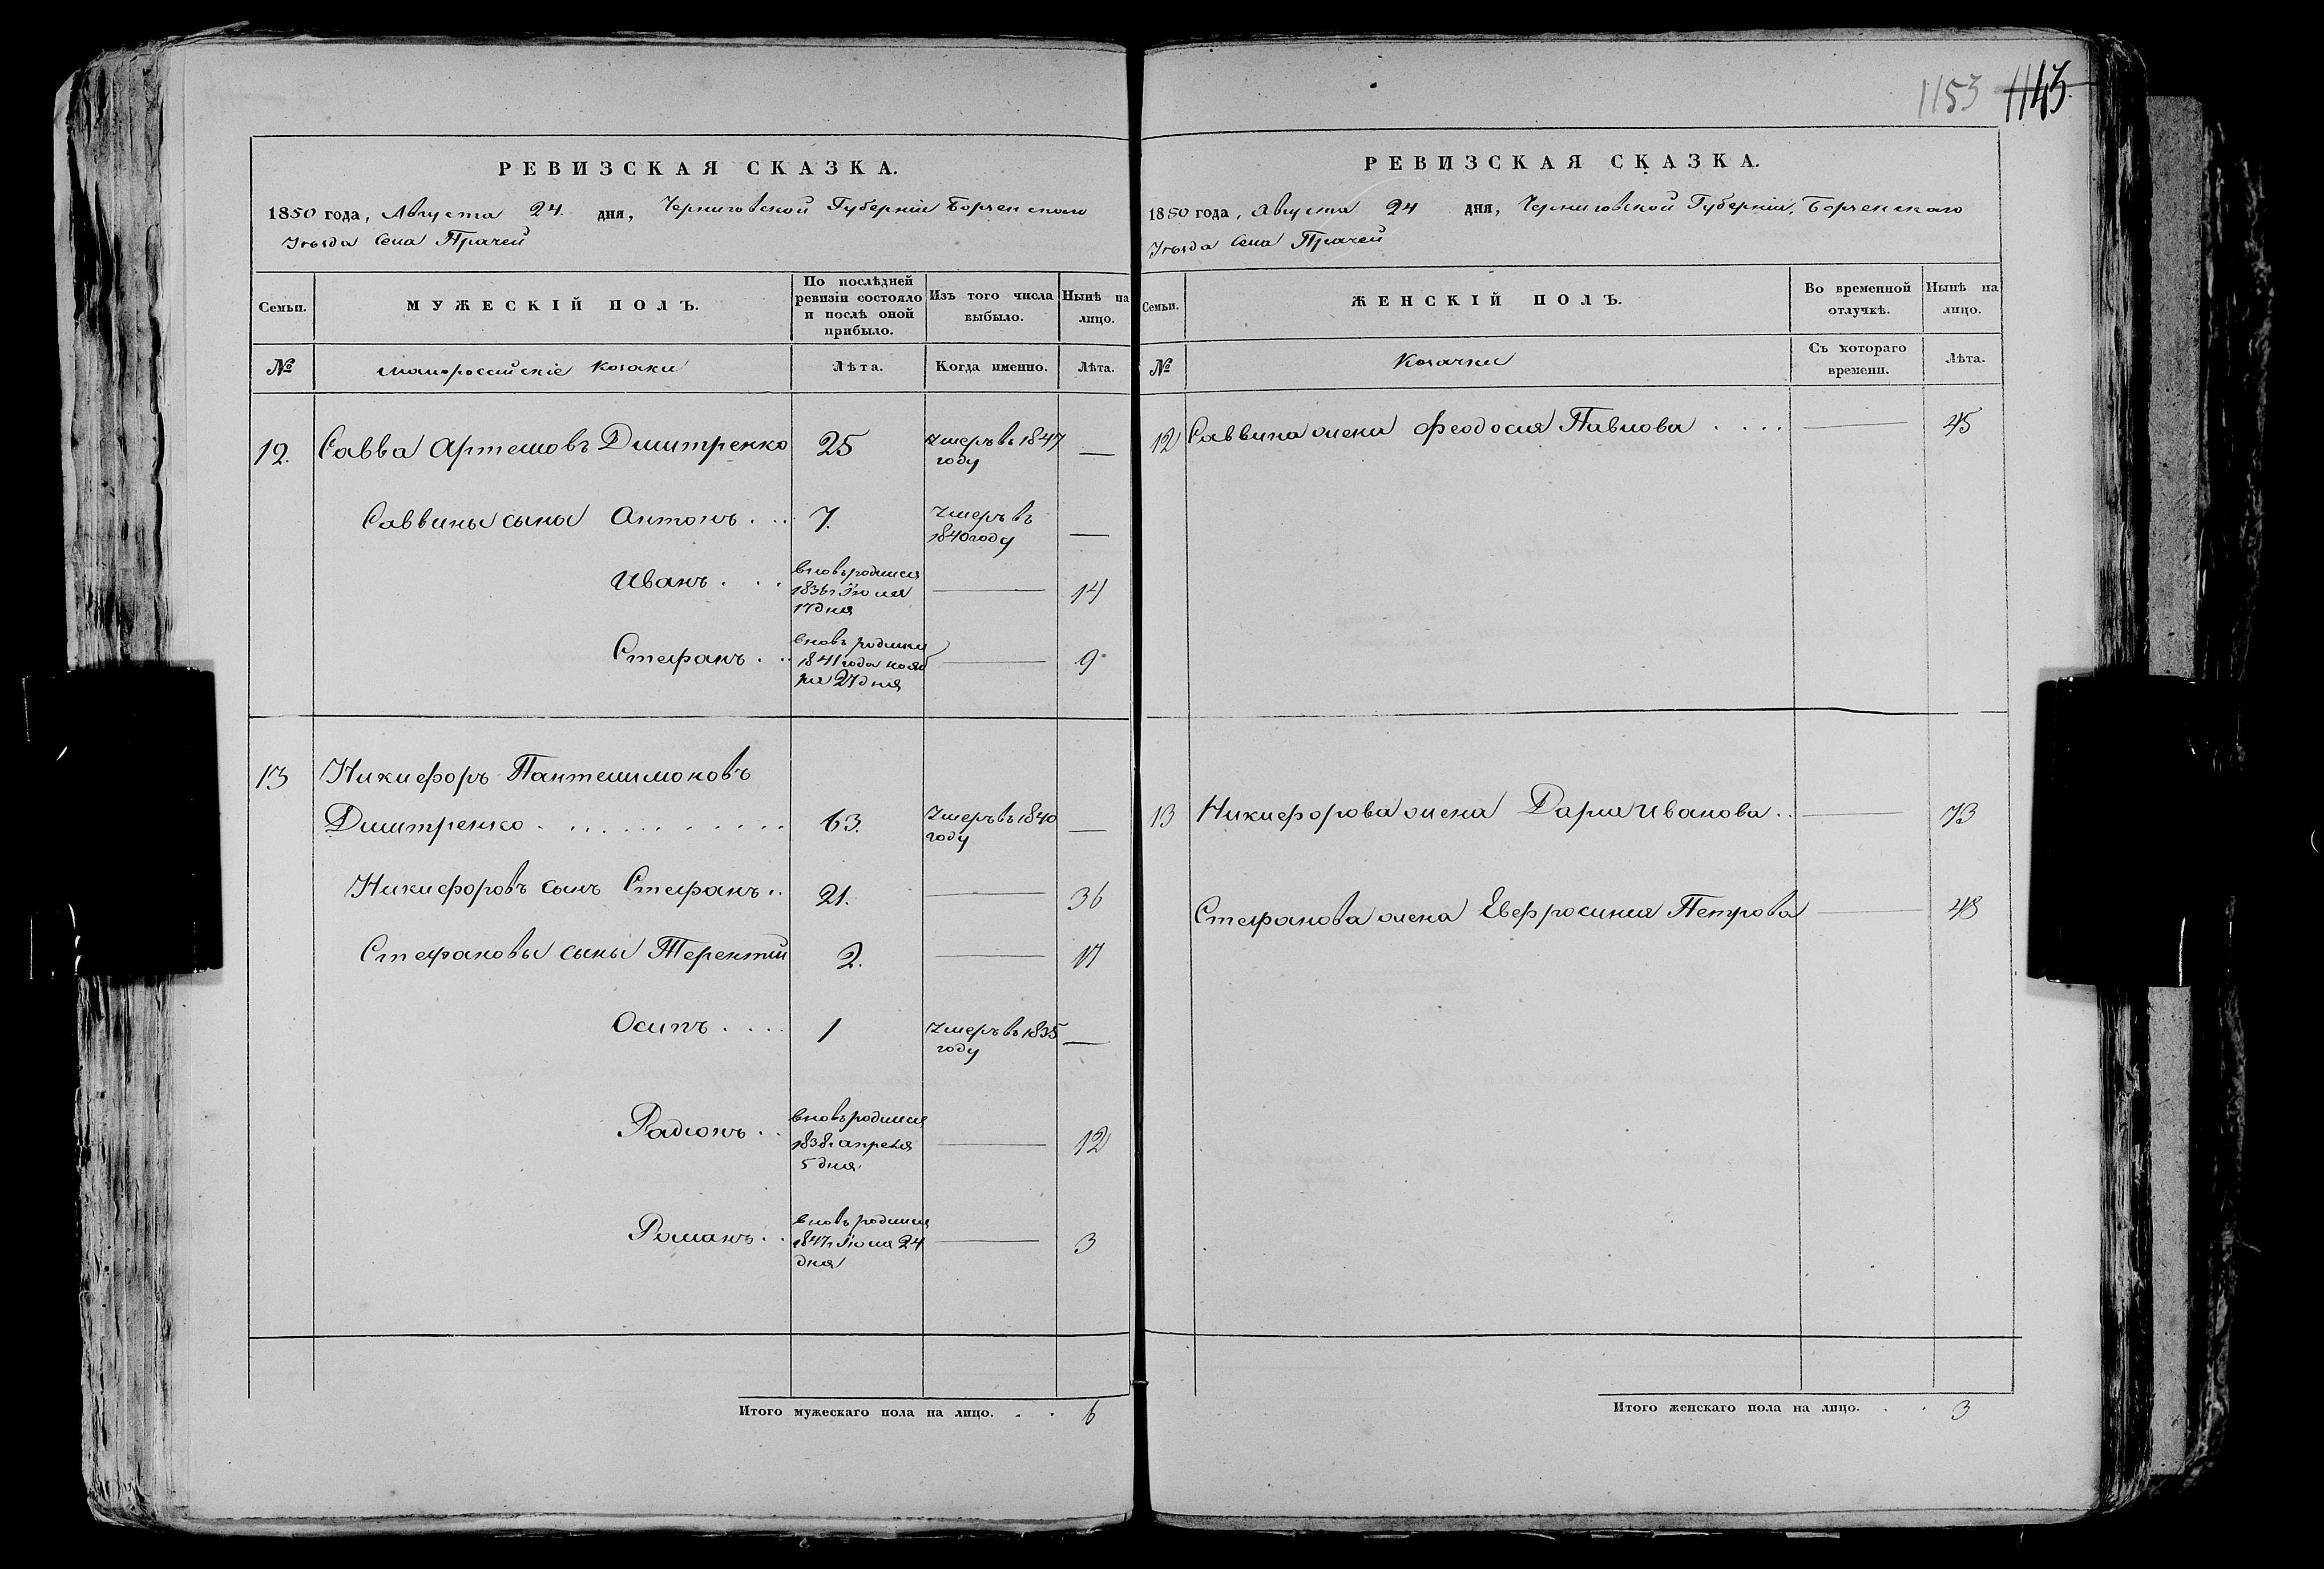 1153 1143
РЕВИЗСКАЯ СКАЗКА.
1850 года, Августа 24. дня, Черниговской Губерніи Борзенскаго
Уѣзда Села Прачей
Семьи. МУЖЕСКІЙ ПОЛЪ. По послѣдней ревизіи состояло и послѣ оной прибыло. Изъ того числа выбыло. Нынѣ на лицо.
№ Малороссійскіе Козаки Лѣта. Когда именно. Лѣта.
12. Савва Артемовъ Дмитренко 25 Умеръ въ 1847 году —
Саввины сыны Антонъ . . . 7. Умеръ въ 1840 году —
Иванъ . . . вновь родился 1836 г. Іюля 17 дня — 14
Стефанъ . . . вновь родился 1841 года ноября 27 дня — 9
13 Никифоръ Пантелимоновъ
Дмитренко . . . . . . . . . . 63. Умеръ въ 1840 году —
Никифоровъ сынъ Стефанъ . . 21. — 36
Стефановы сыны Терентій 2. — 17
Осипъ . . . . 1 Умеръ въ 1835 году —
Радіонъ . . вновь родился 1838 г. апреля 5 дня — 12
Романъ . . вновь родился 1847 г. Іюля 24 дня — 3
Итого мужескаго пола на лицо. . . 6
РЕВИЗСКАЯ СКАЗКА.
1850 года, Августа 24 дня, Черниговской Губерніи, Борзенскаго
Уѣзда Села Прачей
Семьи. ЖЕНСКІЙ ПОЛЪ. Во временной отлучкѣ. Нынѣ на лицо.
№ Козачки Съ котораго времени. Лѣта.
12 Саввина жена Феодосия Павлова . . . . — 45
13 Никифорова жена Дария Иванова . . — 73
Стефанова жена Евфросиния Петрова — 48
Итого женскаго пола на лицо. . . 3